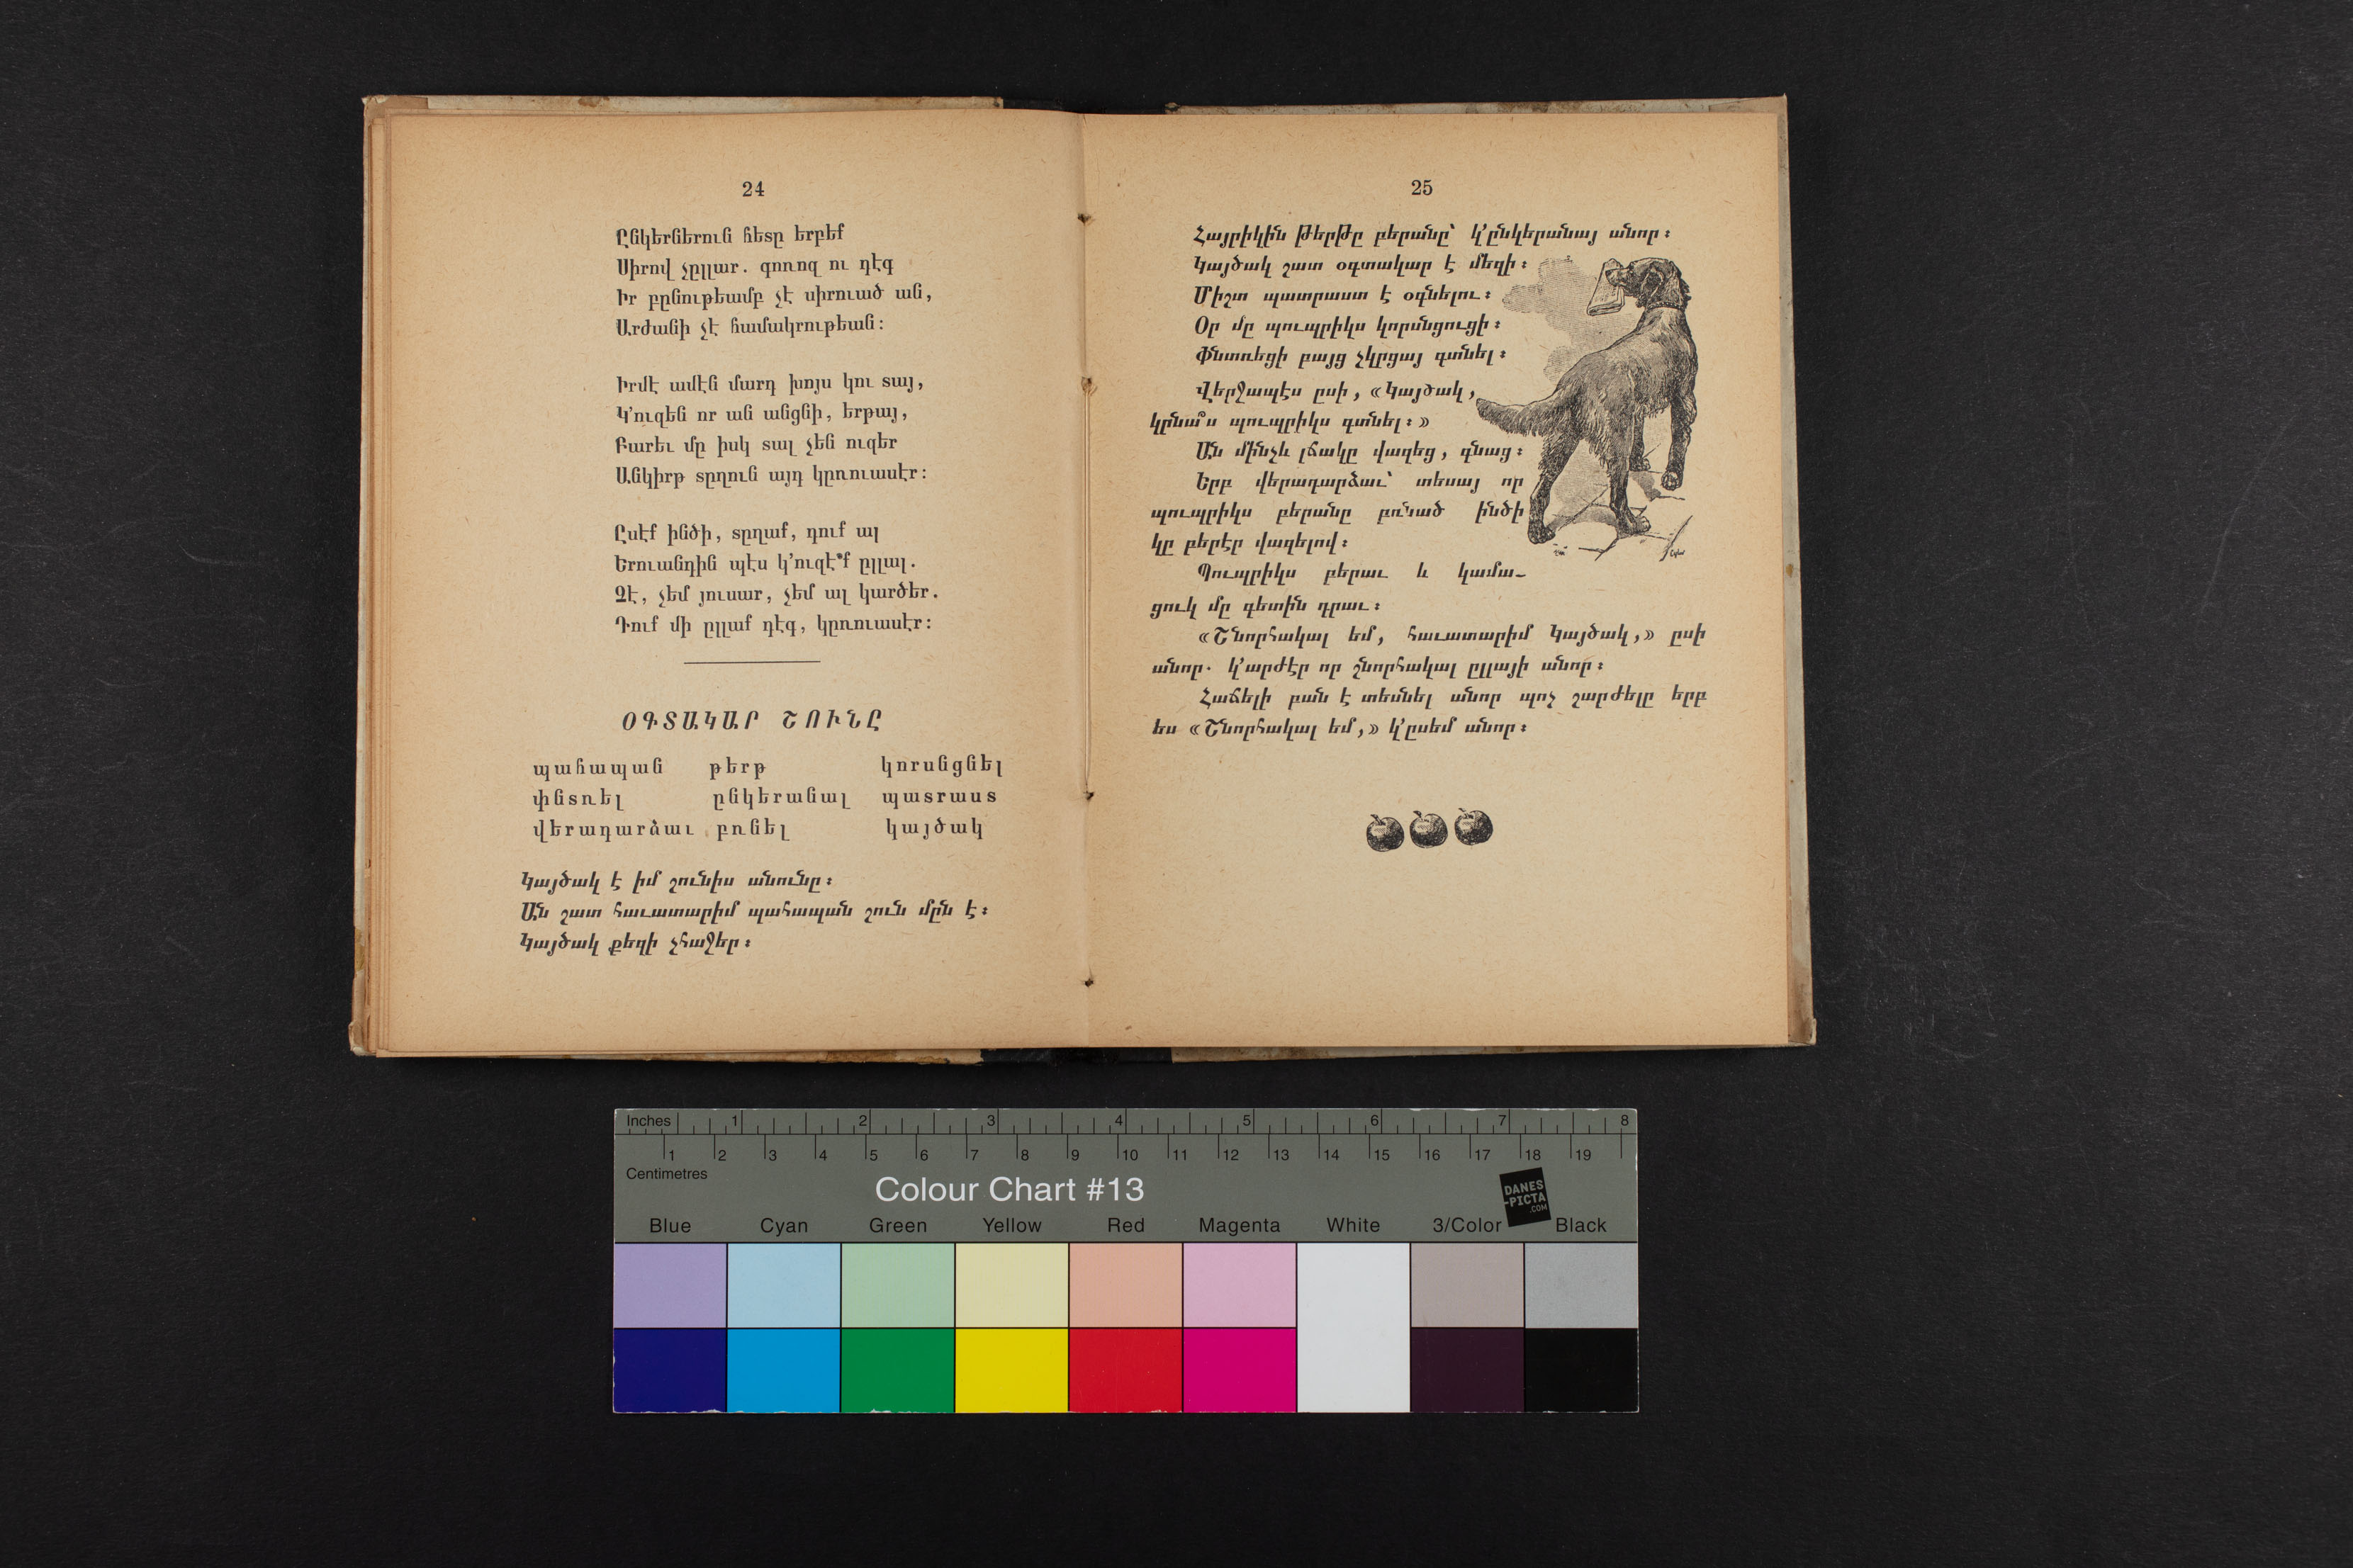 24
Ընկերներուն հետը երբեք
Սիրով չըլլար. գոռոզ ու դէգ
Իր բընութեամբ չէ սիրուած ան,
Արժանի չէ համակրութեան:
Իրմէ ամէն մարդ խոյս կու տայ,
Կ՚ուզեն որ ան անցնի, երթայ,
Բարեւ մը իսկ տալ չեն ուզեր
Անկիրթ տըղուն այդ կըռուասէր:
Ըսէք ինծի, տըղաք, դուք ալ
Երուանդին պէս կ՚ուզէ՞ք ըլլալ.
Չէ, չեմ յուսար, չեմ ալ կարծեր.
Դուք մի ըլլաք դէգ, կըռուասէր:
ՕԳՏԱԿԱՐ ՇՈՒՆԸ
պահապան թերթ կորսնցնել
փնտռել ընկերանալ պատրաստ
վերադարձաւ բռնել կայծակ
Կայծակ է իմ շունիս անունը:
Ան շատ հաւատարիմ պահապան շուն մըն է:
Կայծակ քեզի չհաջեր:
25
Հայրիկին թերթը բերանը՝ կ՚ընկերանայ անոր:
Կայծակ շատ օգտակար է մեզի:
Միշտ պատրաստ է օգնելու:
Օր մը պուպրիկս կորսնցուցի:
Փնտռեցի բայց չկրցայ գտնել:
Վերջապէս ըսի, «Կայծակ,
կըրնա՞ս պուպրիկս գտնել:»
Ան մինչև լճակը վազեց, գնաց:
Երբ վերադարձաւ՝ տեսայ որ
պուպրիկս բերանը բռնած ինծի
կը բերէր վազելով:
Պուպրիկս բերաւ և կամա-
ցուկ մը գետին դրաւ:
«Շնորհակալ եմ, հաւատարիմ Կայծակ,» ըսի
անոր. կ՚արժէր որ շնորհակալ ըլլայի անոր:
Հաճելի բան է տեսնել անոր պոչ շարժելը երբ
ես «Շնորհակալ եմ,» կ՚ըսեմ անոր:
Inches 1 2 3 4 5 6 7 8
1 2 3 4 5 6 7 8 9 10 11 12 13 14 15 16 17 18 19
Centimetres
Colour Chart #13
DANES
-PICTA
.COM
Blue Cyan Green Yellow Red Magenta White 3/Color Black